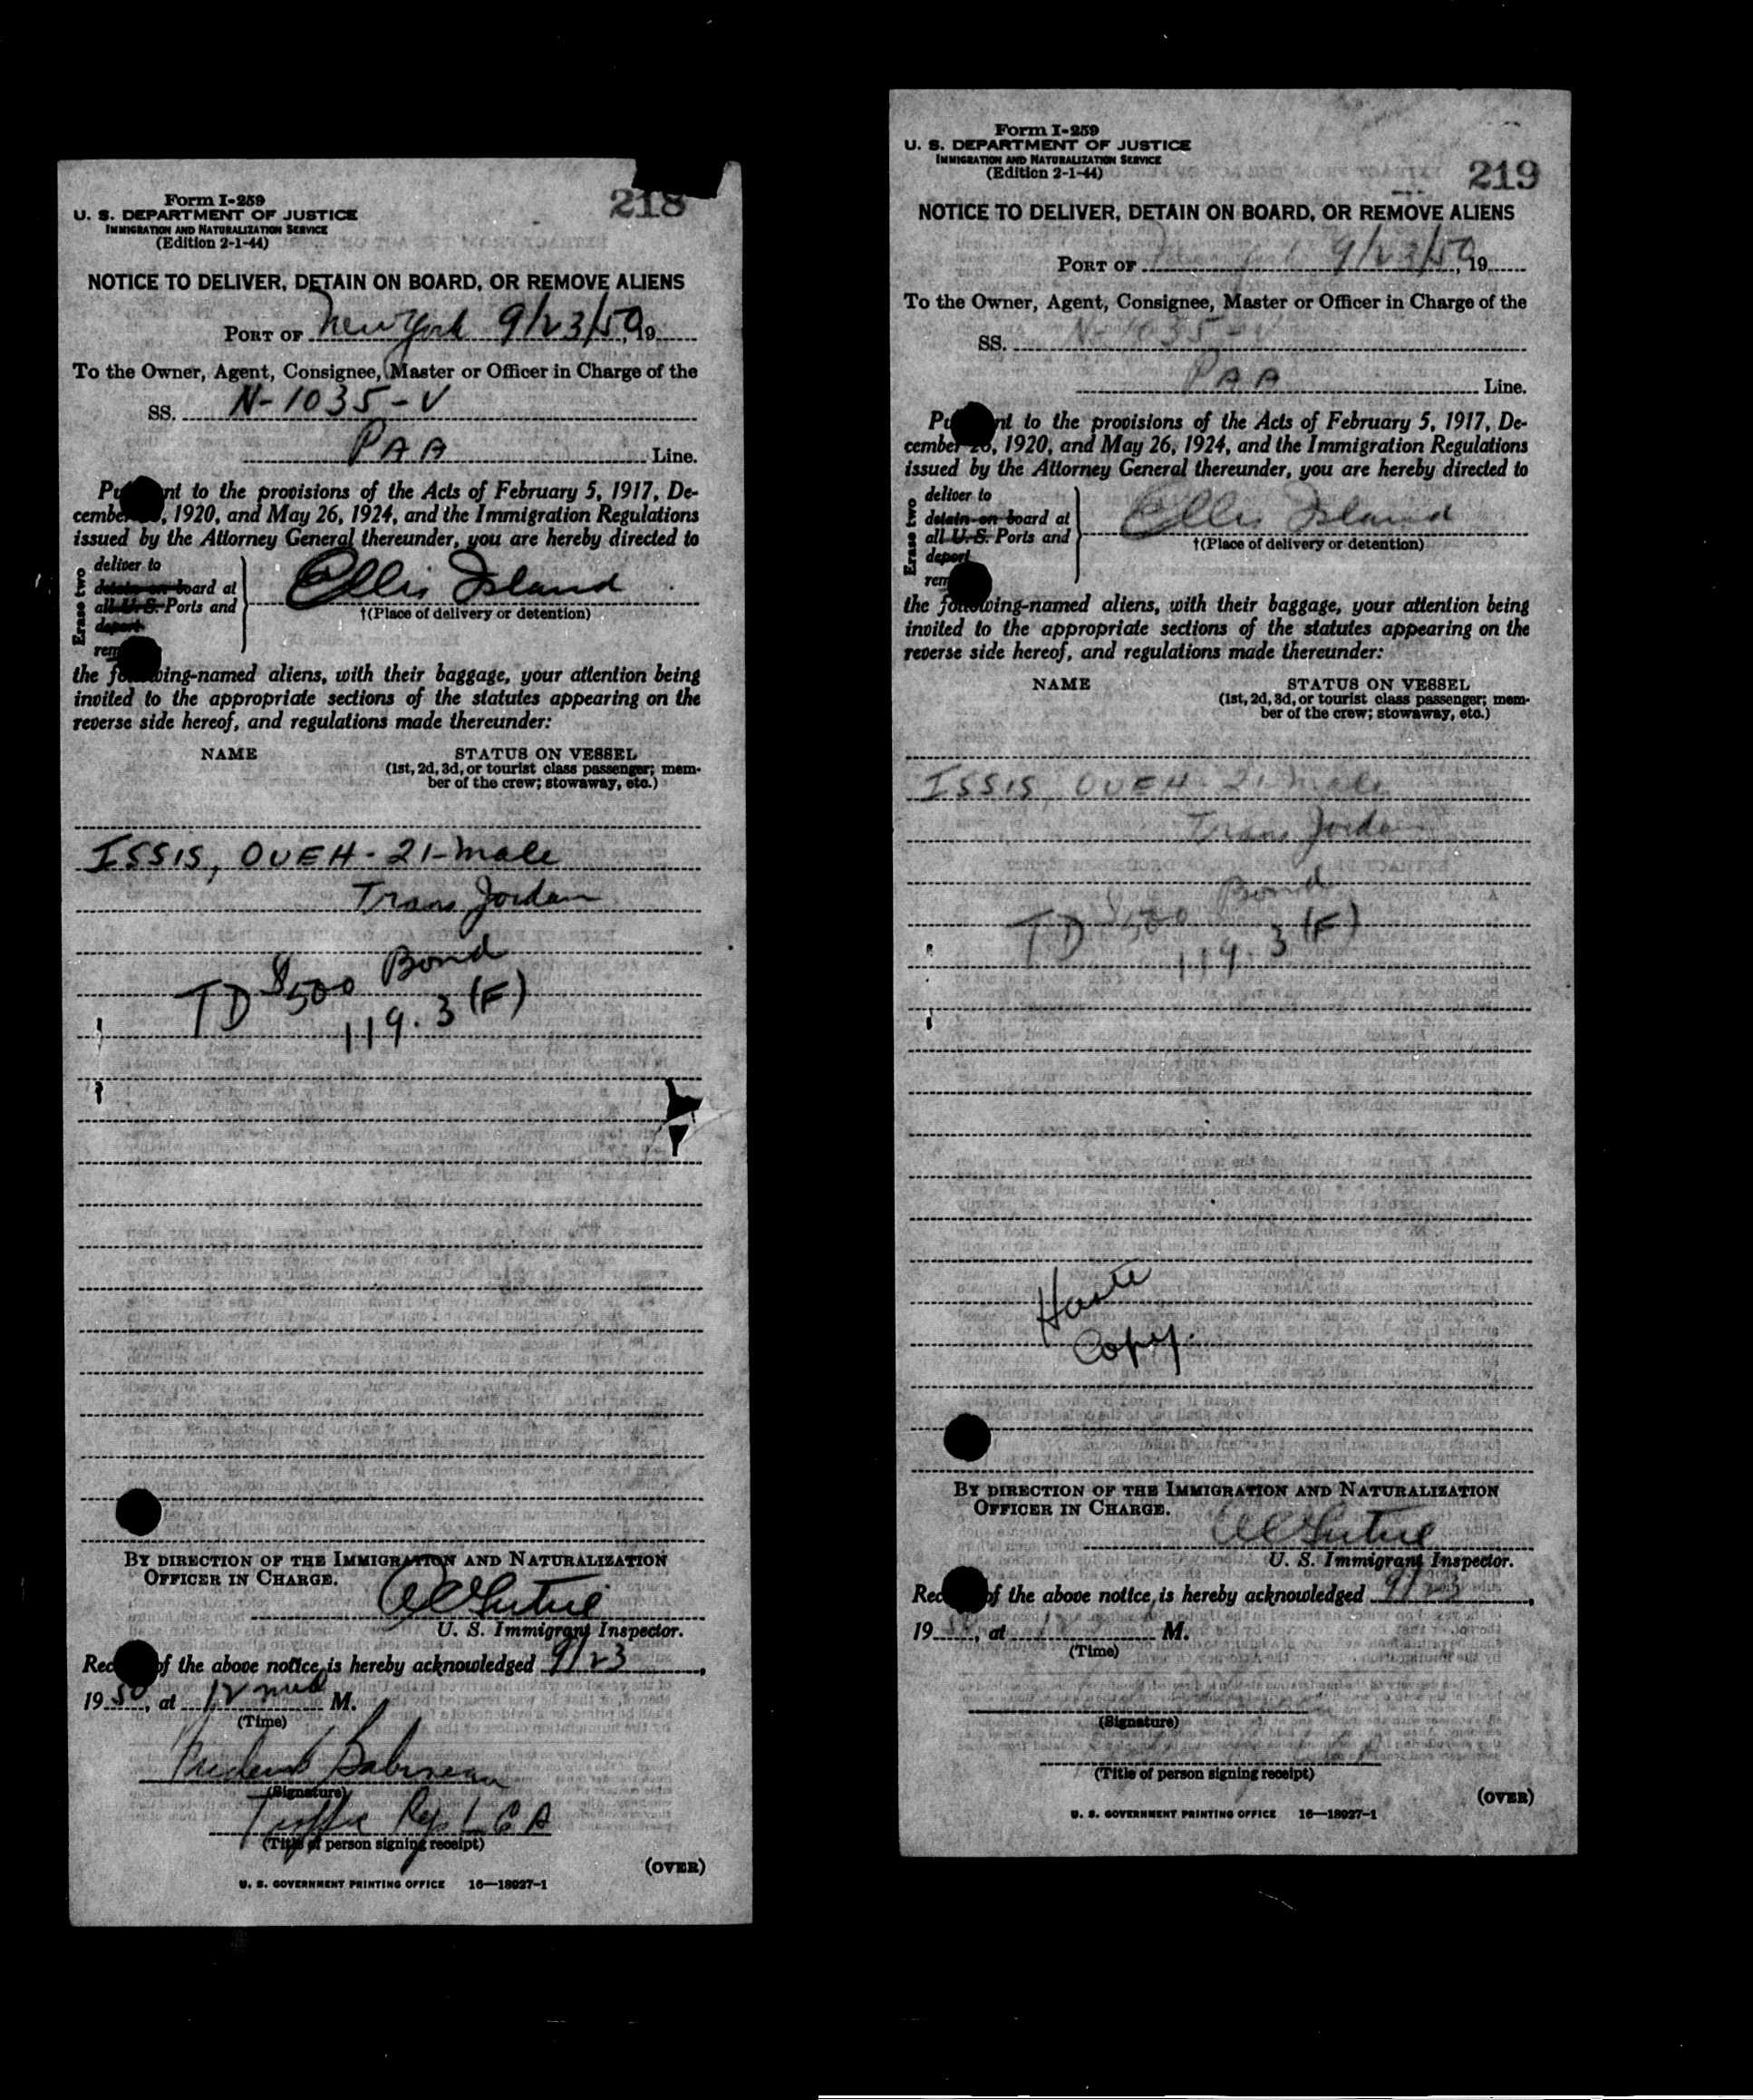 Form I-259
U. S. DEPARTMENT OF JUSTICE
IMMIGRATION AND NATURALIZATION SERVICE
(Edition 2-1-44)
218
NOTICE TO DELIVER, DETAIN ON BOARD, OR REMOVE ALIENS
PORT OF New York 9/23/50, 19
To the Owner, Agent, Consignee, Master or Officer in Charge of the
SS. N-1035-V
PAA Line.
Pu nt to the provisions of the Acts of February 5, 1917, De-
cembe , 1920, and May 26, 1924, and the Immigration Regulations
issued by the Attorney General thereunder, you are hereby directed to
Erase two
deliver to
detain on board at
all U.S. Ports and
deport
rem
Ellis Island
†(Place of delivery or detention)
the following-named aliens, with their baggage, your attention being
invited to the appropriate sections of the statutes appearing on the
reverse side hereof, and regulations made thereunder:
NAME STATUS ON VESSEL
(1st, 2d, 3d, or tourist class passenger; mem-
ber of the crew; stowaway, etc.)
ISSIS, OUEH - 21 - male
Trans Jordan
TD $500 Bond
119.3 (F)
BY DIRECTION OF THE IMMIGRATION AND NATURALIZATION
OFFICER IN CHARGE.
U. S. Immigrant Inspector.
Rec of the above notice is hereby acknowledged 9/23,
1950, at 12 M.
(Time)
(Signature)
Traffic
(Title of person signing receipt)
(OVER)
U. S. GOVERNMENT PRINTING OFFICE 16—18027-1
Form I-259
U. S. DEPARTMENT OF JUSTICE
IMMIGRATION AND NATURALIZATION SERVICE
(Edition 2-1-44)
219
NOTICE TO DELIVER, DETAIN ON BOARD, OR REMOVE ALIENS
PORT OF 9/23/50, 19
To the Owner, Agent, Consignee, Master or Officer in Charge of the
SS. N-1035-V
PAA Line.
Pu nt to the provisions of the Acts of February 5, 1917, De-
cember 26, 1920, and May 26, 1924, and the Immigration Regulations
issued by the Attorney General thereunder, you are hereby directed to
Erase two
deliver to
detain on board at
all U.S. Ports and
deport
rem
Ellis Island
†(Place of delivery or detention)
the following-named aliens, with their baggage, your attention being
invited to the appropriate sections of the statutes appearing on the
reverse side hereof, and regulations made thereunder:
NAME STATUS ON VESSEL
(1st, 2d, 3d, or tourist class passenger; mem-
ber of the crew; stowaway, etc.)
ISSIS, OUEH - 21 - male
Trans Jordan
TD $500 Bond
119.3 (F)
Copy.
BY DIRECTION OF THE IMMIGRATION AND NATURALIZATION
OFFICER IN CHARGE.
U. S. Immigrant Inspector.
Rec of the above notice is hereby acknowledged 9/23,
19 , at M.
(Time)
(Signature)
(Title of person signing receipt)
(OVER)
U. S. GOVERNMENT PRINTING OFFICE 16—18027-1